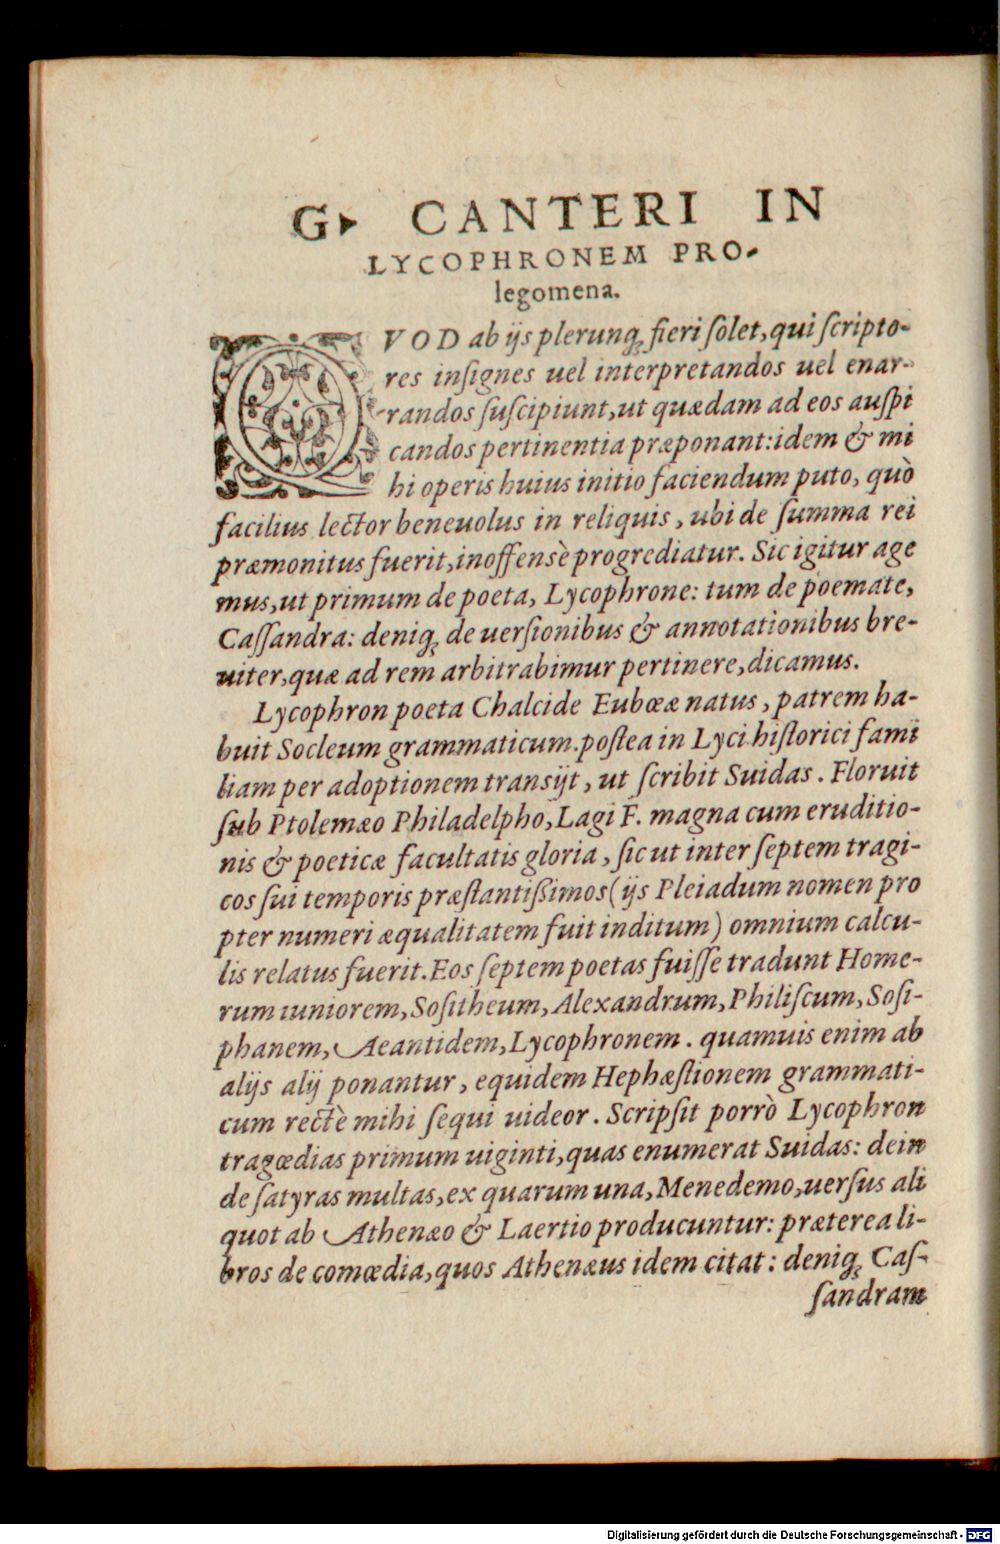 G. CANTERI IN
LYCOPHRONEM PRO-
legomena.
QVOD ab ijs plerunq; fieri ſolet, qui ſcripto-
res inſignes uel interpretandos uel enar-
randos ſuſcipiunt, ut quædam ad eos auſpi
candos pertinentia præponant: idem & mi
hi operis huius initio faciendum puto, quò
facilius lector beneuolus in reliquis, ubi de ſumma rei
præmonitus fuerit, inoffensè progrediatur. Sic igitur age
mus, ut primum de poeta, Lycophrone: tum de poemate,
Caſſandra: deniq; de uerſionibus & annotationibus bre-
uiter, quæ ad rem arbitrabimur pertinere, dicamus.
Lycophron poeta Chalcide Eubœæ natus, patrem ha-
buit Socleum grammaticum. poſtea in Lyci hiſtorici fami
liam per adoptionem tranſijt, ut ſcribit Suidas. Floruit
ſub Ptolemæo Philadelpho, Lagi F. magna cum eruditio-
nis & poeticæ facultatis gloria, ſic ut inter ſeptem tragi-
cos ſui temporis præſtantißimos (ijs Pleiadum nomen pro
pter numeri æqualitatem fuit inditum) omnium calcu-
lis relatus fuerit. Eos ſeptem poetas fuiſſe tradunt Home-
rum iuniorem, Soſitheum, Alexandrum, Philiſcum, Soſi-
phanem, Aeantidem, Lycophronem. quamuis enim ab
alijs alij ponantur, equidem Hephæſtionem grammati-
cum rectè mihi ſequi uideor. Scripſit porrò Lycophron
tragœdias primum uiginti, quas enumerat Suidas: dein
de ſatyras multas, ex quarum una, Menedemo, uerſus ali
quot ab Athenæo & Laertio producuntur: præterea li-
bros de comœdia, quos Athenæus idem citat: deniq; Caſ-
ſandram
Digitalisierung gefördert durch die Deutsche Forschungsgemeinschaft - DFG